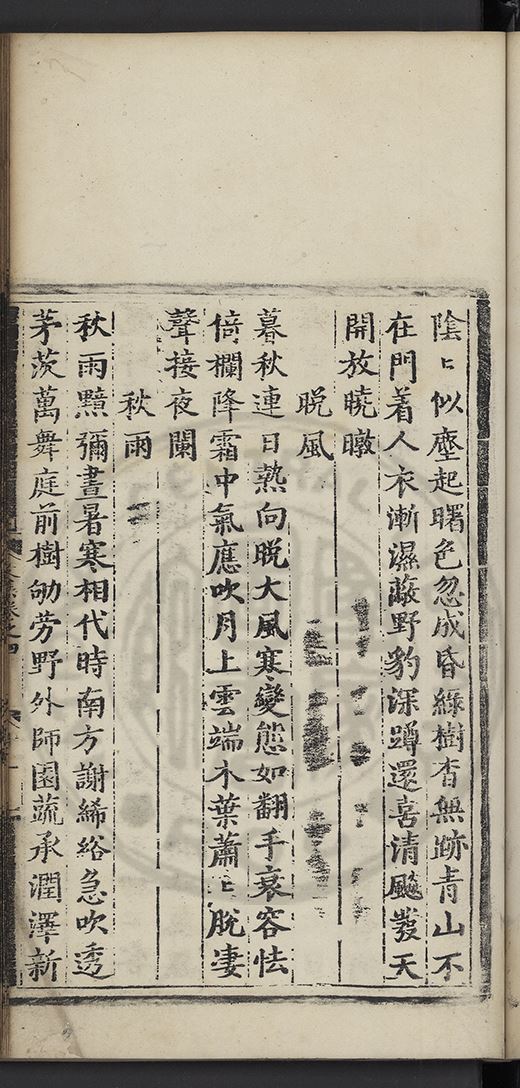 陰〻似塵起曙色忽成昏綠樹杳無跡青山不
在門着人衣漸濕蔽野豹深蹲還喜清飈發天
開放曉暾
晚風
暮秋連日熱向晚大風寒變態如翻手衰容怯
倚欄降霜中氣應吹月上雲端木葉蕭〻脫淒
聲接夜闌
秋雨
秋雨黯彌晝暑寒相代時南方謝絺綌急吹透
茅茨萬舞庭前樹劬芳野外師園蔬承潤澤新